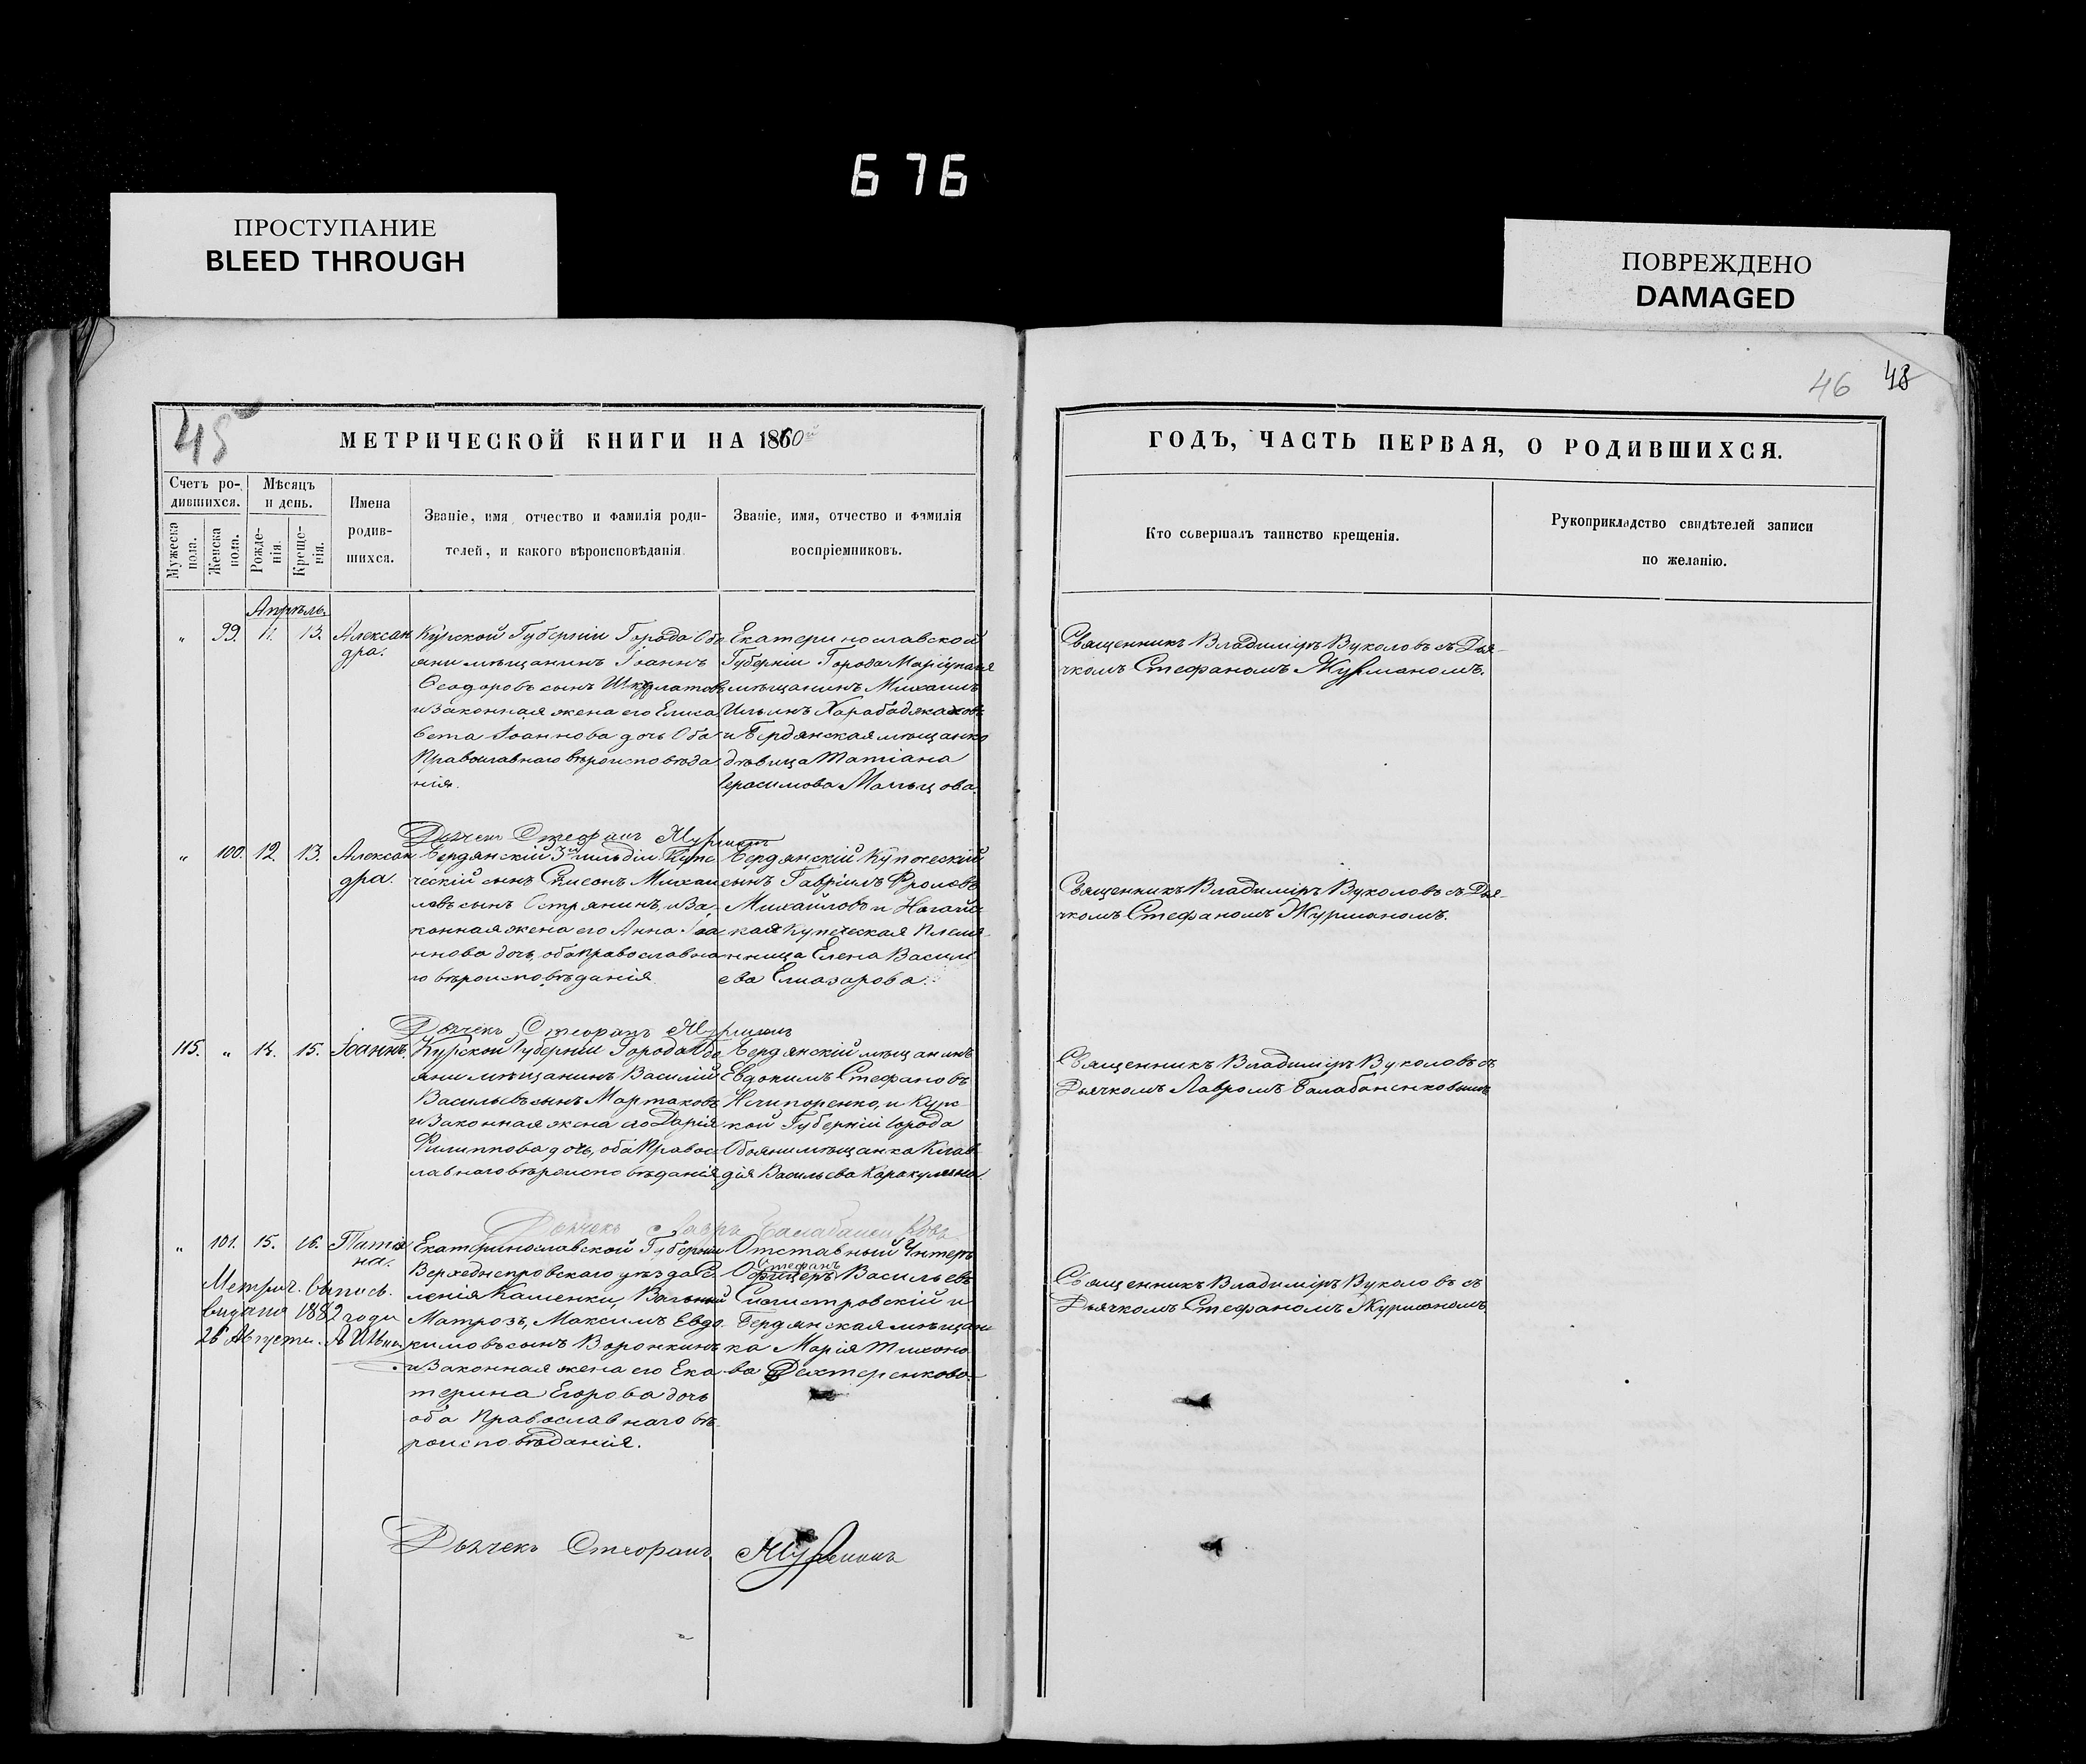 676
ПРОСТУПАНИЕ
BLEED THROUGH
ПОВРЕЖДЕНО
DAMAGED
46 48
45
МЕТРИЧЕСКОЙ КНИГИ НА 1860й
ГОДЪ, ЧАСТЬ ПЕРВАЯ, О РОДИВШИХСЯ.
Счетъ ро-
дившихся.
Мужеска
пола.
Женска
пола.
Мѣсяцъ
и день.
Рожде-
нія.
Креще-
нія.
Имена
родив-
шихся.
Званіе, имя отчество и фамилія роди-
телей, и какого вѣроисповѣданія.
Званіе, имя, отчество и фамилія
воспріемниковъ.
Кто совершалъ таинство крещенія.
Рукоприкладство свидѣтелей записи
по желанію.
Апрѣль.
" 99. 11. 13.
Алексан
дра.
Курской Губерніи Города Обо
яни мѣщанинъ Іоаннъ
Ѳеодоровъ сынъ
и Законная жена его Елиса
вета Іоаннова дочь Оба
Православнаго вѣроисповѣда
нія.
Екатеринославской
Губерніи Города Маріуполя
мѣщанинъ Михаилъ
Ильинъ
и Бердянская мѣщанка
дѣвица Татіана
Герасимова Мальцова.
Священникъ Владиміръ Вуколовъ съ Дья-
чкомъ Стефаномъ Журманомъ.
Дьячекъ Стефанъ Журманъ
" 100. 12. 13.
Алексан
дра.
Бердянскій 3й гильдіи Купе
ческій сынъ Симеонъ Михаи
ловъ сынъ Острянинъ, и За-
конная жена его Анна Іоа
ннова дочь, оба православна
го вѣроисповѣданія.
Бердянскій Купеческій
сынъ Гавріилъ Фроловъ
Михайловъ и Ногайс
кая Купеческая Племя-
нница Елена Василь
ева Елиазарова.
Священникъ Владиміръ Вуколовъ съ Дья-
чкомъ Стефаномъ Журманомъ.
Дьячекъ Стефанъ Журманъ
115. " 14. 15. Іоаннъ.
Курской Губерніи Города Обо
яни мѣщанинъ Василій
Васильевъ сынъ Мартаковъ
и Законная жена его Дарія
Филиппова дочь, оба Правос
лавнаго вѣроисповѣданія
Бердянскій мѣщанинъ
Евдокимъ Стефановъ
Нечипоренко, и Курс-
кой Губерніи Города
Обояни мѣщанка Клав
дія Васильева Каракулина.
Священникъ Владиміръ Вуколовъ съ
Дьячкомъ Лавромъ Балабаненковымъ
Дьячекъ Лавръ Балабаненковъ
" 101. 15. 16.
Татіа
на.
Метрич. выпись.
выдана 1882 года
26 Августа.
Екатеринославской Губерніи
Верхеднепровскаго уѣзда Се
ленія Каменки,
Матрозъ, Максимъ Евдо
кимовъ сынъ Воронкинъ
и Законная жена его Ека
терина Егорова дочь
оба Православнаго вѣ-
роисповѣданія.
Отставный Унтеръ
Стефанъ
Офицеръ Васильевъ
и
Бердянская мѣщан
ка Марія Тихоно
ва Дехтеренкова.
Священникъ Владиміръ Вуколовъ съ
Дьячкомъ Стефаномъ Журманомъ.
Дьячекъ Стефанъ Журманъ